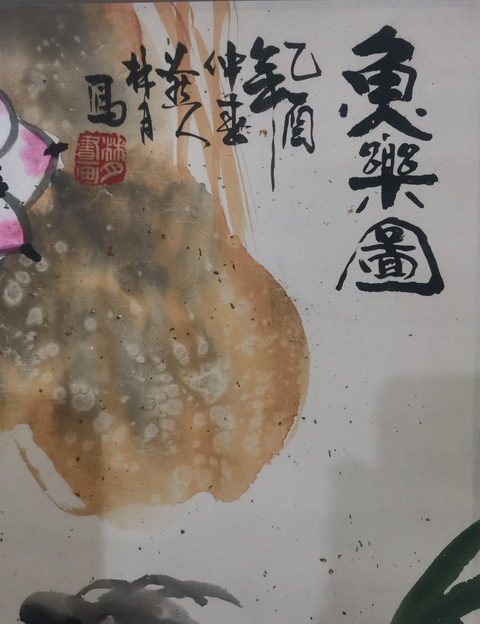 魚樂圖
乙酉
年
仲春
人
林月
写
林月
書画